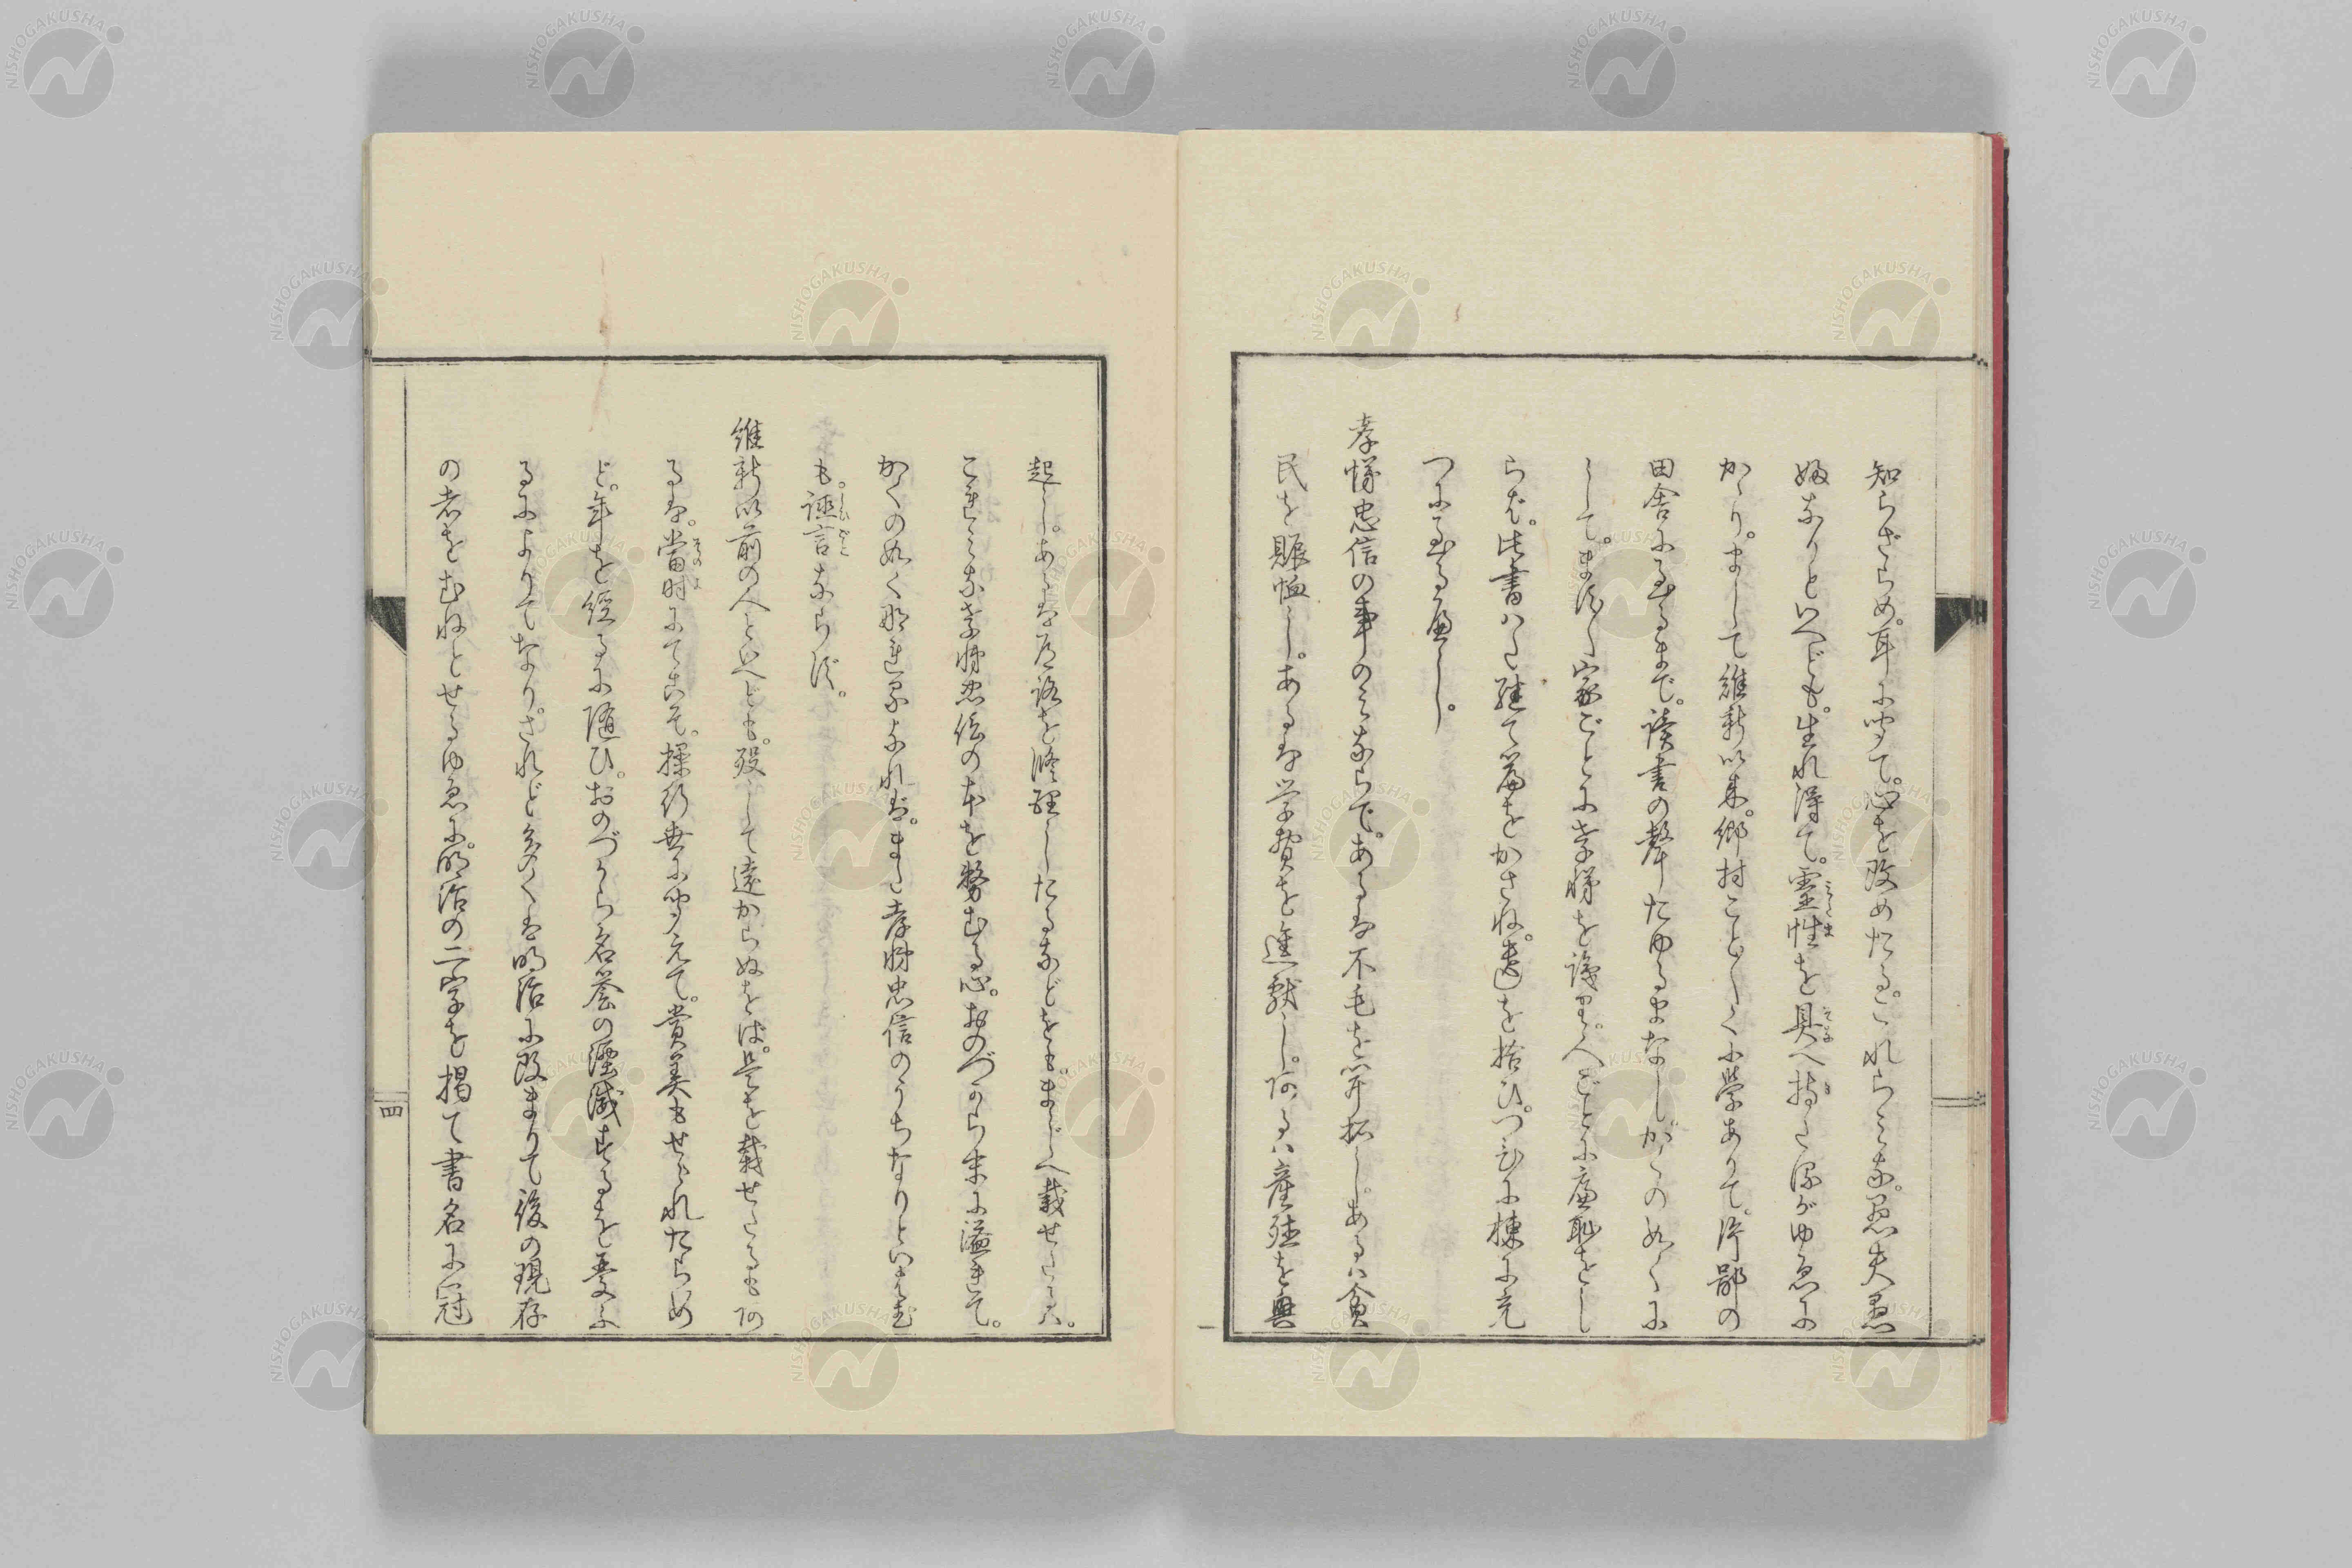 知らざらめ。耳に聞て。心を改めたる。これらみな。愚夫愚
婦なりといへども。生れ得て。靈性を具へ持たるがゆゑに
かゝり。まして維新以来。郷村こと〴〵く小學ありて。片鄙の
田舎に至るまで。讀書の聲たゆるまなし。かくの如くに
して。ます〳〵家ごとに孝悌を講じ。人ごとに廉恥をし
らば。此書ハた續て篇をかさね。遺を拾ひ。つひに棟に充
つに至る應し。
孝悌忠信の事のみならで。あるは不毛を開拓し。あるハ貧
民を賑恤し。あるは学費を進献し。阿るハ産殖を興
起し。あるは道路を修理したるなどをも。まじへ載せたるハ。
これみな孝悌忠信の本を務むる心。おのづから末に溢れて。
かくの如く那れるなれば。また孝悌忠信のうちなりといはむ
も。誣言ならず。
維新以前の人といへども。歿して遠からぬをば。是を載せたるも阿
るは。當時にてこそ。操行世に聞えて。賞美もせられたらめ
ど。年を經るに随ひ。おのづから名誉の湮滅するをうれふ
るによりてなり。されど多くは明治に改まりて後の現存
の者をむねとせるゆゑに。明治の二字を掲て書名に冠
四
NISHOGAKUSHA